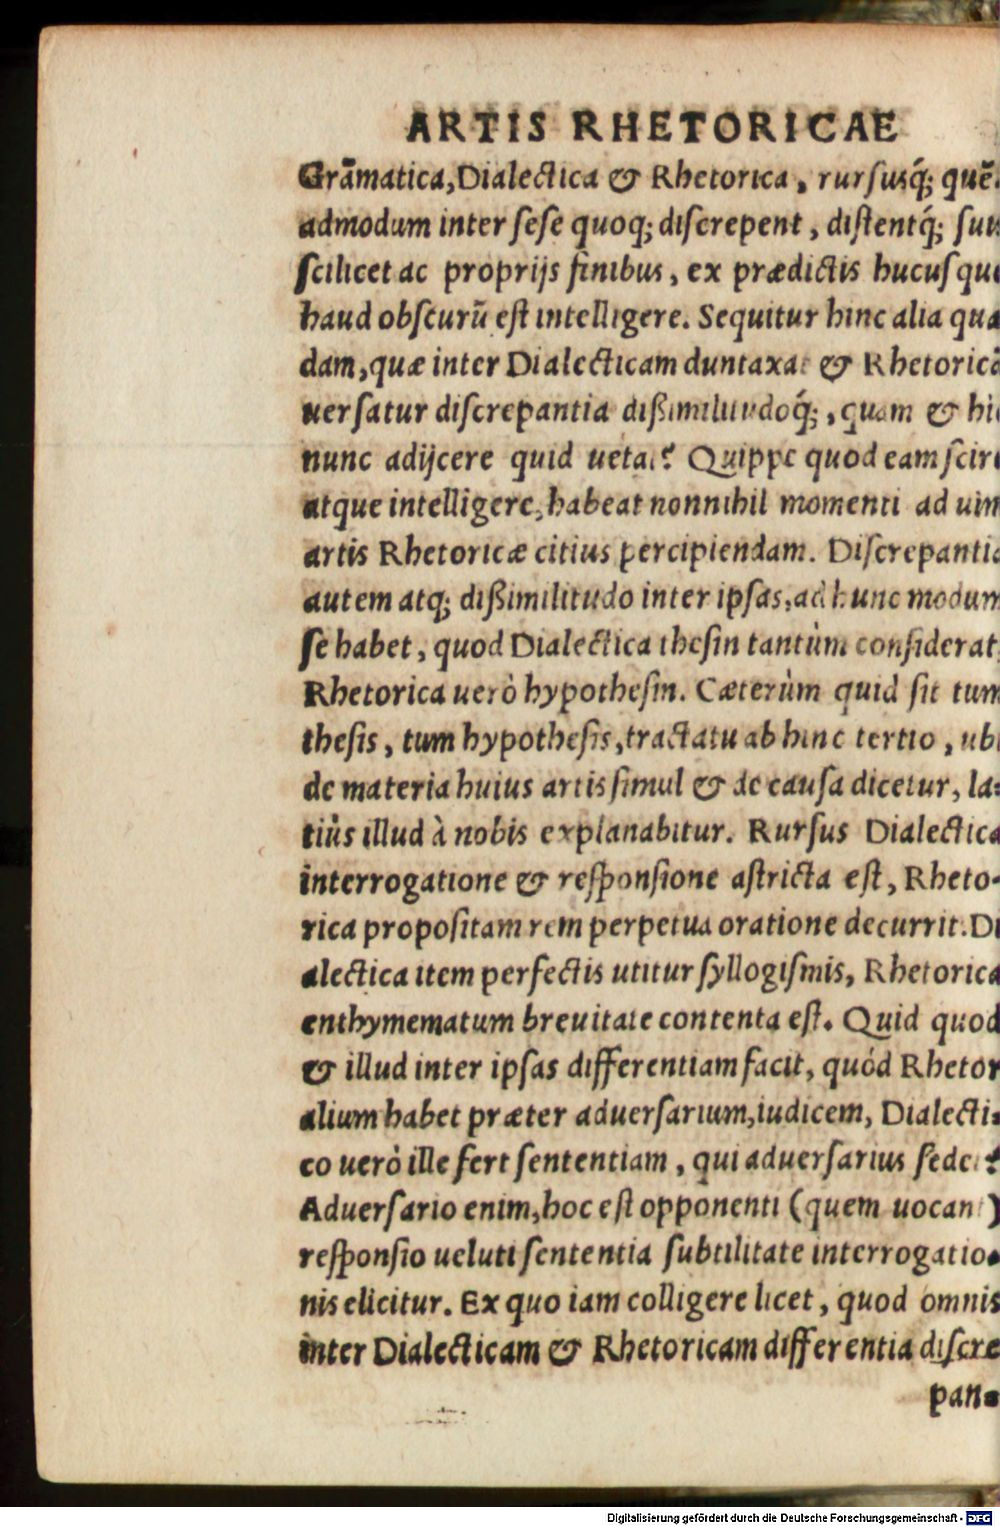 ARTIS RHETORICAE
Grãmatica, Dialectica & Rhetorica, rursusq́; quẽ-
admodum inter sese quoq; discrepent, distentq́; suis
scilicet ac proprijs finibus, ex prædictis hucusque
haud obscurũ est intelligere. Sequitur hinc alia quæ
dam, quæ inter Dialecticam duntaxat & Rhetoricã
uersatur discrepantia dißimilitudoq́;, quam & hic
nunc adijcere quid uetat? Quippe quod eam scire
atque intelligere, habeat nonnihil momenti ad uim
artis Rhetoricæ citius percipiendam. Discrepantia
autem atq; dißimilitudo inter ipsas, ad hunc modum
se habet, quod Dialectica thesin tantùm considerat,
Rhetorica uerò hypothesin. Cæterùm quid sit tum
thesis, tum hypothesis, tractatu ab hinc tertio, ubi
de materia huius artis simul & de causa dicetur, la-
tiùs illud à nobis explanabitur. Rursus Dialectica
interrogatione & responsione astricta est, Rheto-
rica propositam rem perpetua oratione decurrit. Di
alectica item perfectis utitur syllogismis, Rhetorica
enthymematum breuitate contenta est. Quid quod
& illud inter ipsas differentiam facit, quód Rhetor
alium habet præter aduersarium, iudicem, Dialecti-
co uerò ille fert sententiam, qui aduersarius sedet?
Aduersario enim, hoc est opponenti (quem uocant)
responsio ueluti sententia subtilitate interrogatio-
nis elicitur. Ex quo iam colligere licet, quod omnis
inter Dialecticam & Rhetoricam differentia discre
pan-
Digitalisierung gefördert durch die Deutsche Forschungsgemeinschaft - DFG